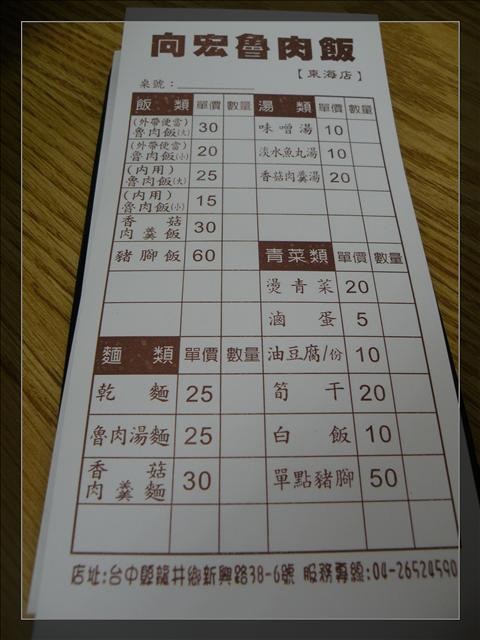 向宏魯肉飯
【東海店】
桌號：
飯類 單價 數量 湯類 單價 數量
(外帶便當)
魯肉飯(大) 30 味噌湯 10
(外帶便當)
魯肉飯(小) 20 淡水魚丸湯 10
(內用)
魯肉飯(大) 25 香菇肉羹湯 20
(內用)
魯肉飯(小) 15
香菇
肉羹飯 30
豬腳飯 60 青菜類 單價 數量
燙青菜 20
滷蛋 5
麵類 單價 數量 油豆腐/份 10
乾麵 25 筍干 20
魯肉湯麵 25 白飯 10
香菇
肉羹麵 30 單點豬腳 50
店址:台中縣龍井鄉新興路38-6號 服務專線:04-26524590